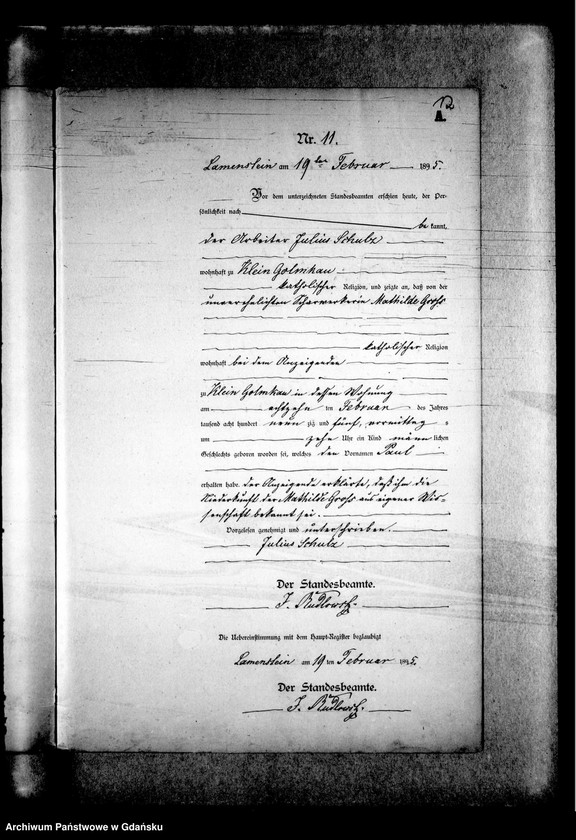 12
A.
Nr. 11.
Lamenstein am 19ten Februar 1895.
Vor dem unterzeichneten Standesbeamten erschien heute, der Per-
sönlichkeit nach
be kannt,
der Arbeiter Julius Schulz
wohnhaft zu Klein Golmkau
katholischer Religion, und zeigte an, daß von der
unverehelichten Scharwerkerin Mathilde Grohs
katholischer Religion
wohnhaft bei dem Anzeigenden
zu Klein Golmkau in dessen Wohnung
am achtzehn ten Februar des Jahres
tausend acht hundert neun zig und fünf, vormittag s
um zehn Uhr ein Kind männ lichen
Geschlechts geboren worden sei, welches den Vornamen Paul
erhalten habe. Der Anzeigende erklärte, daß ihm die
Niederkunft der Mathilde Grohs aus eigener Wis-
senschaft bekannt sei.
Vorgelesen, genehmigt und unterschrieben.
Julius Schulz
Der Standesbeamte.
Die Uebereinstimmung mit dem Haupt-Register beglaubigt
Lamenstein am 19 ten Februar 1895.
Der Standesbeamte.
Archiwum Państwowe w Gdańsku